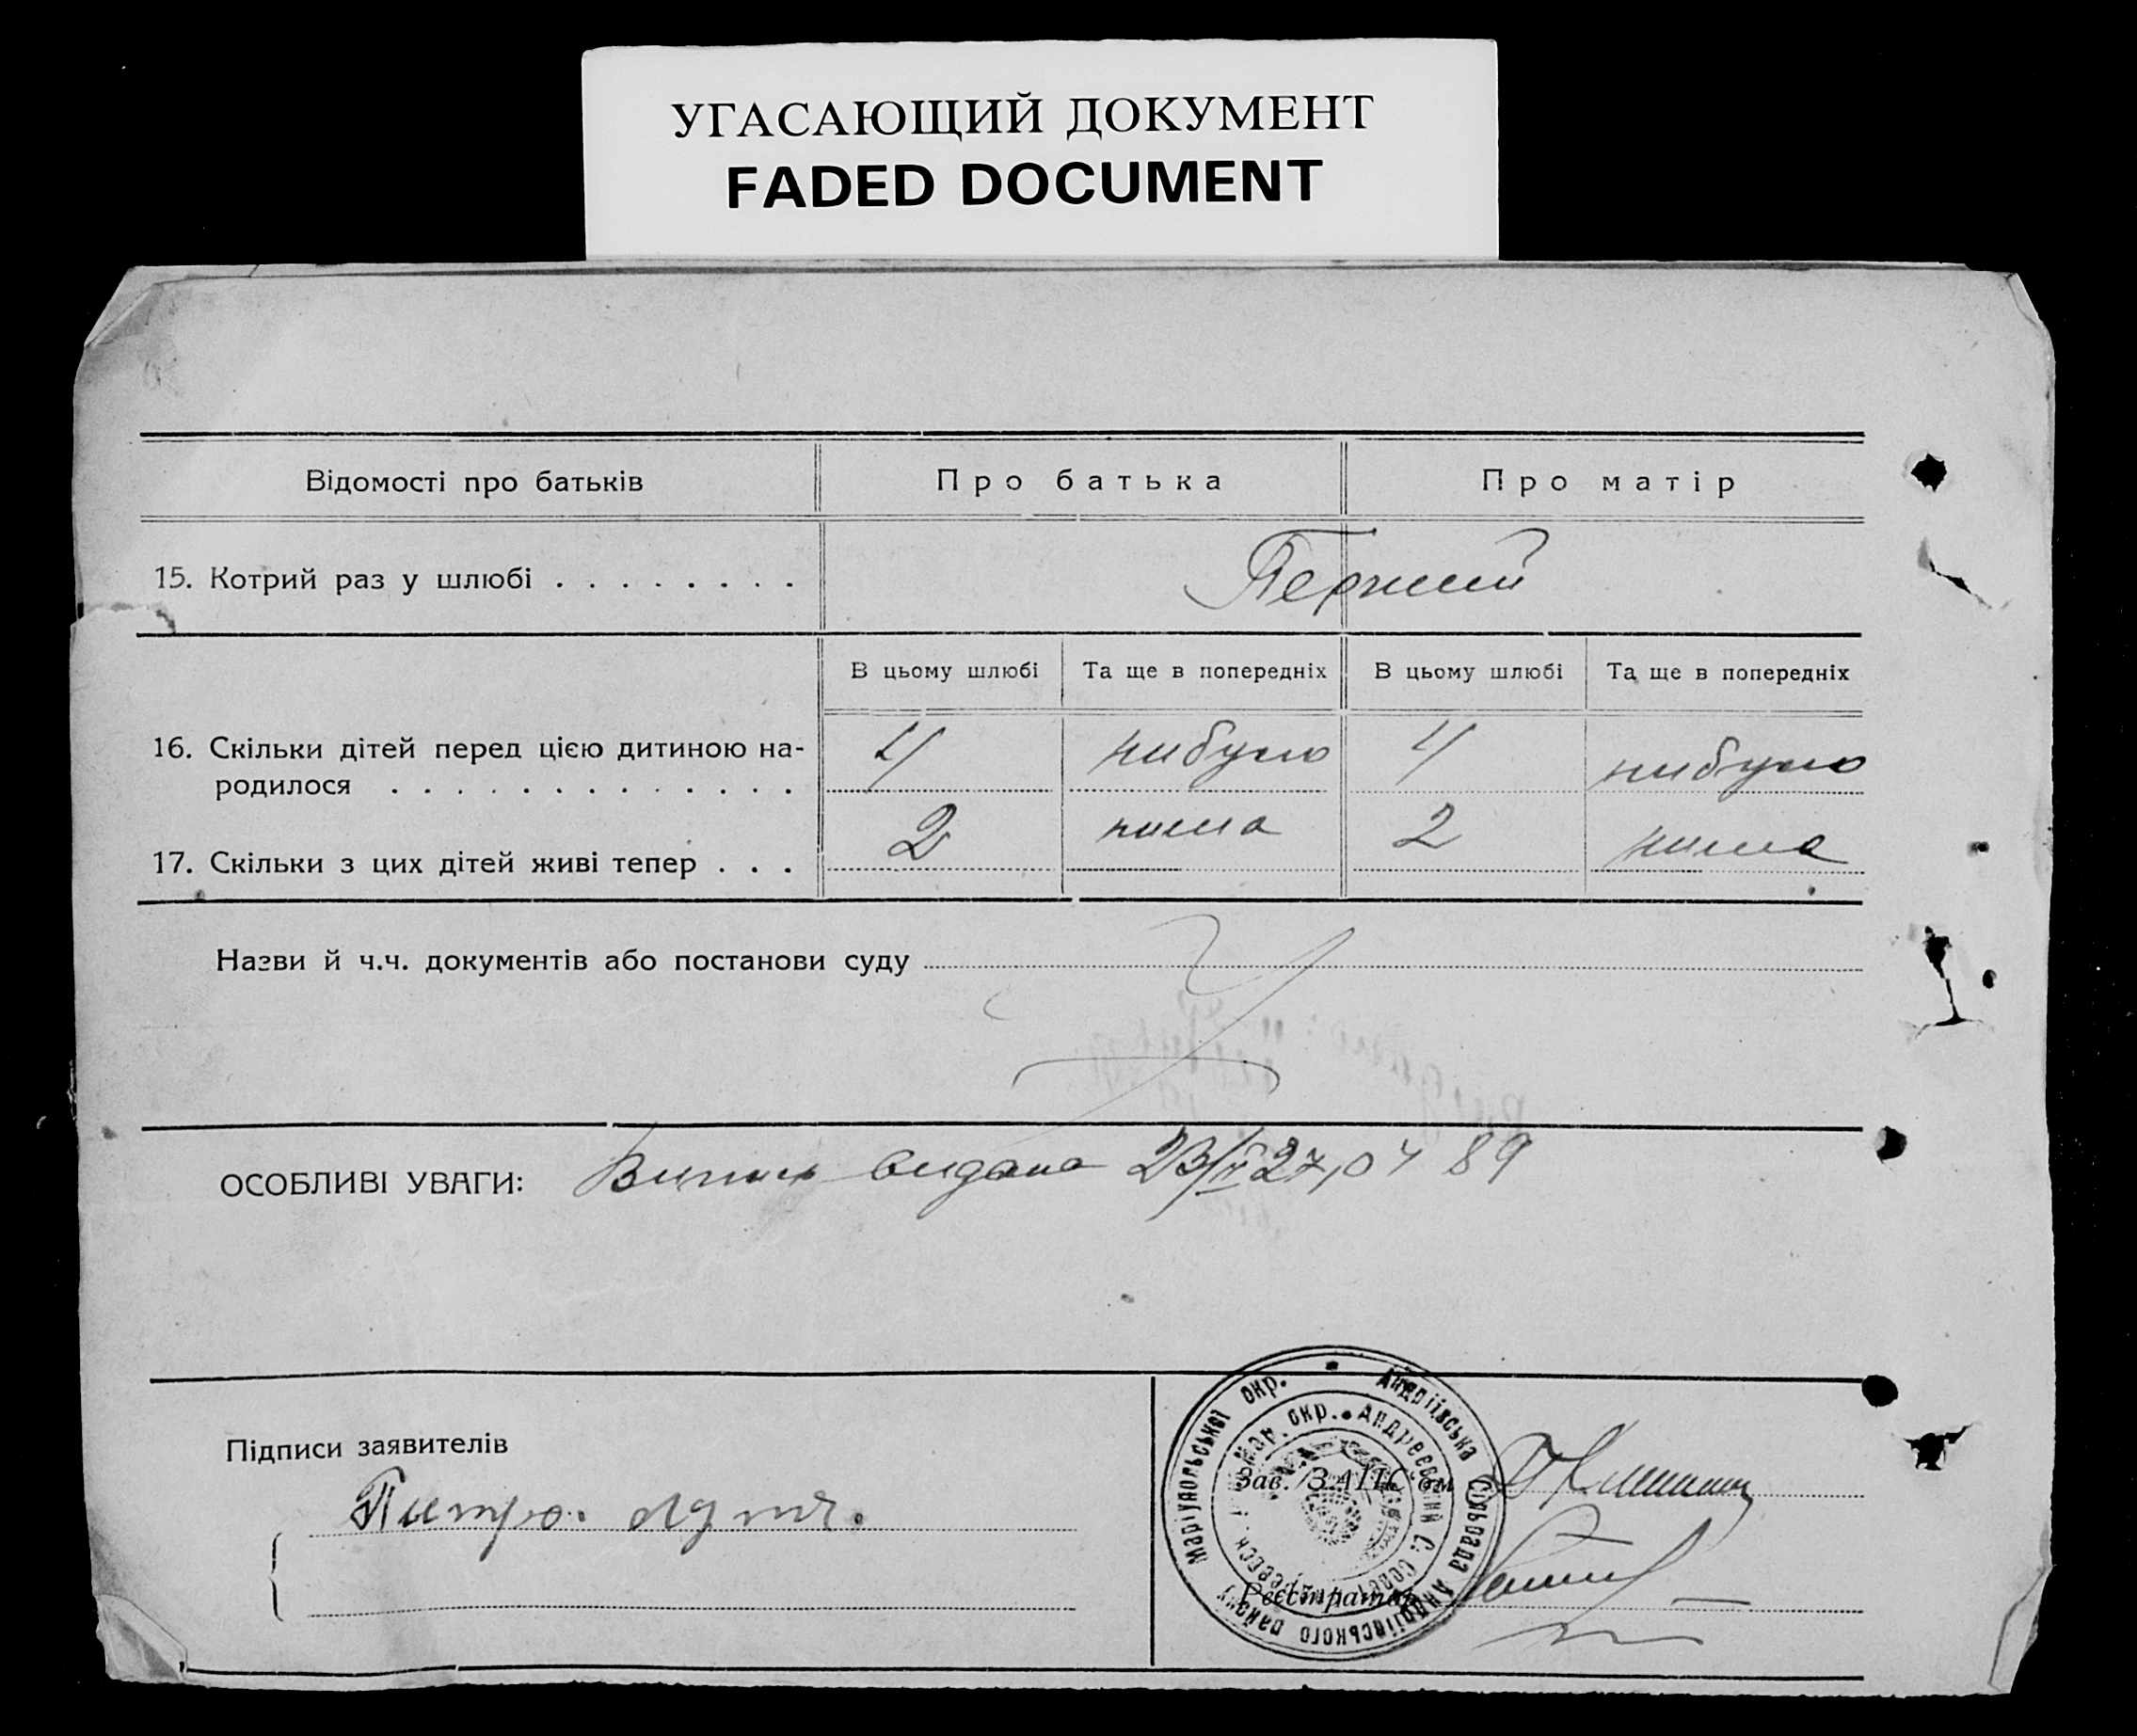 УГАСАЮЩИЙ ДОКУМЕНТ
FADED DOCUMENT
Відомості про батьків
Про батька
Про матір
15. Котрий раз у шлюбі . . . . . . . .
Перший
В цьому шлюбі
Та ще в попередніх
В цьому шлюбі
Та ще в попередніх
16. Скільки дітей перед цією дитиною на-
родилося . . . . . . . . . . . . .
4
нибуло
4
нибуло
17. Скільки з цих дітей живі тепер . . .
2
нима
2
нима
Назви й ч.ч. документів або постанови суду
ОСОБЛИВІ УВАГИ: Випись видана 23/IV 27, 04 89
Підписи заявителів
Зав. ЗАГС'ом
Реєстратор
Андріївська Сільрада Андріївського району Маріупольської окр.